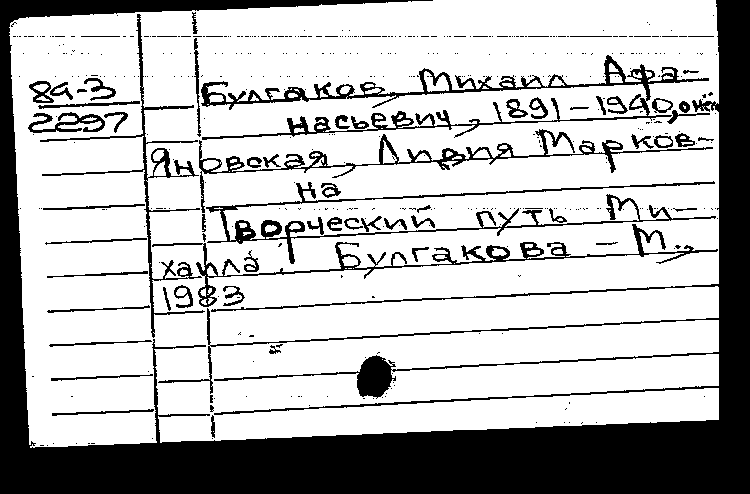 84-3
2297
Булгаков, Михаил Афа-
насьевич, 1891-1940, о нём
Яновская, Лидия Марков-
на
Творческий путь Ми-
хаила Булгакова - М.,
1983